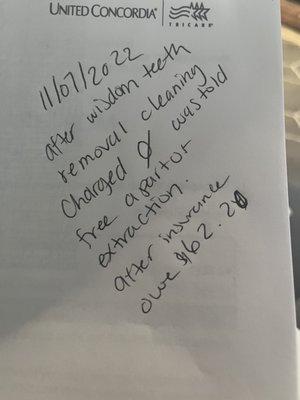 UNITED CONCORDIA®
TRICARE
11/07/2022
after wisdom teeth
removal cleaning
Charged Ø was told
free apart or
extraction.
after insurance
owe $62.20